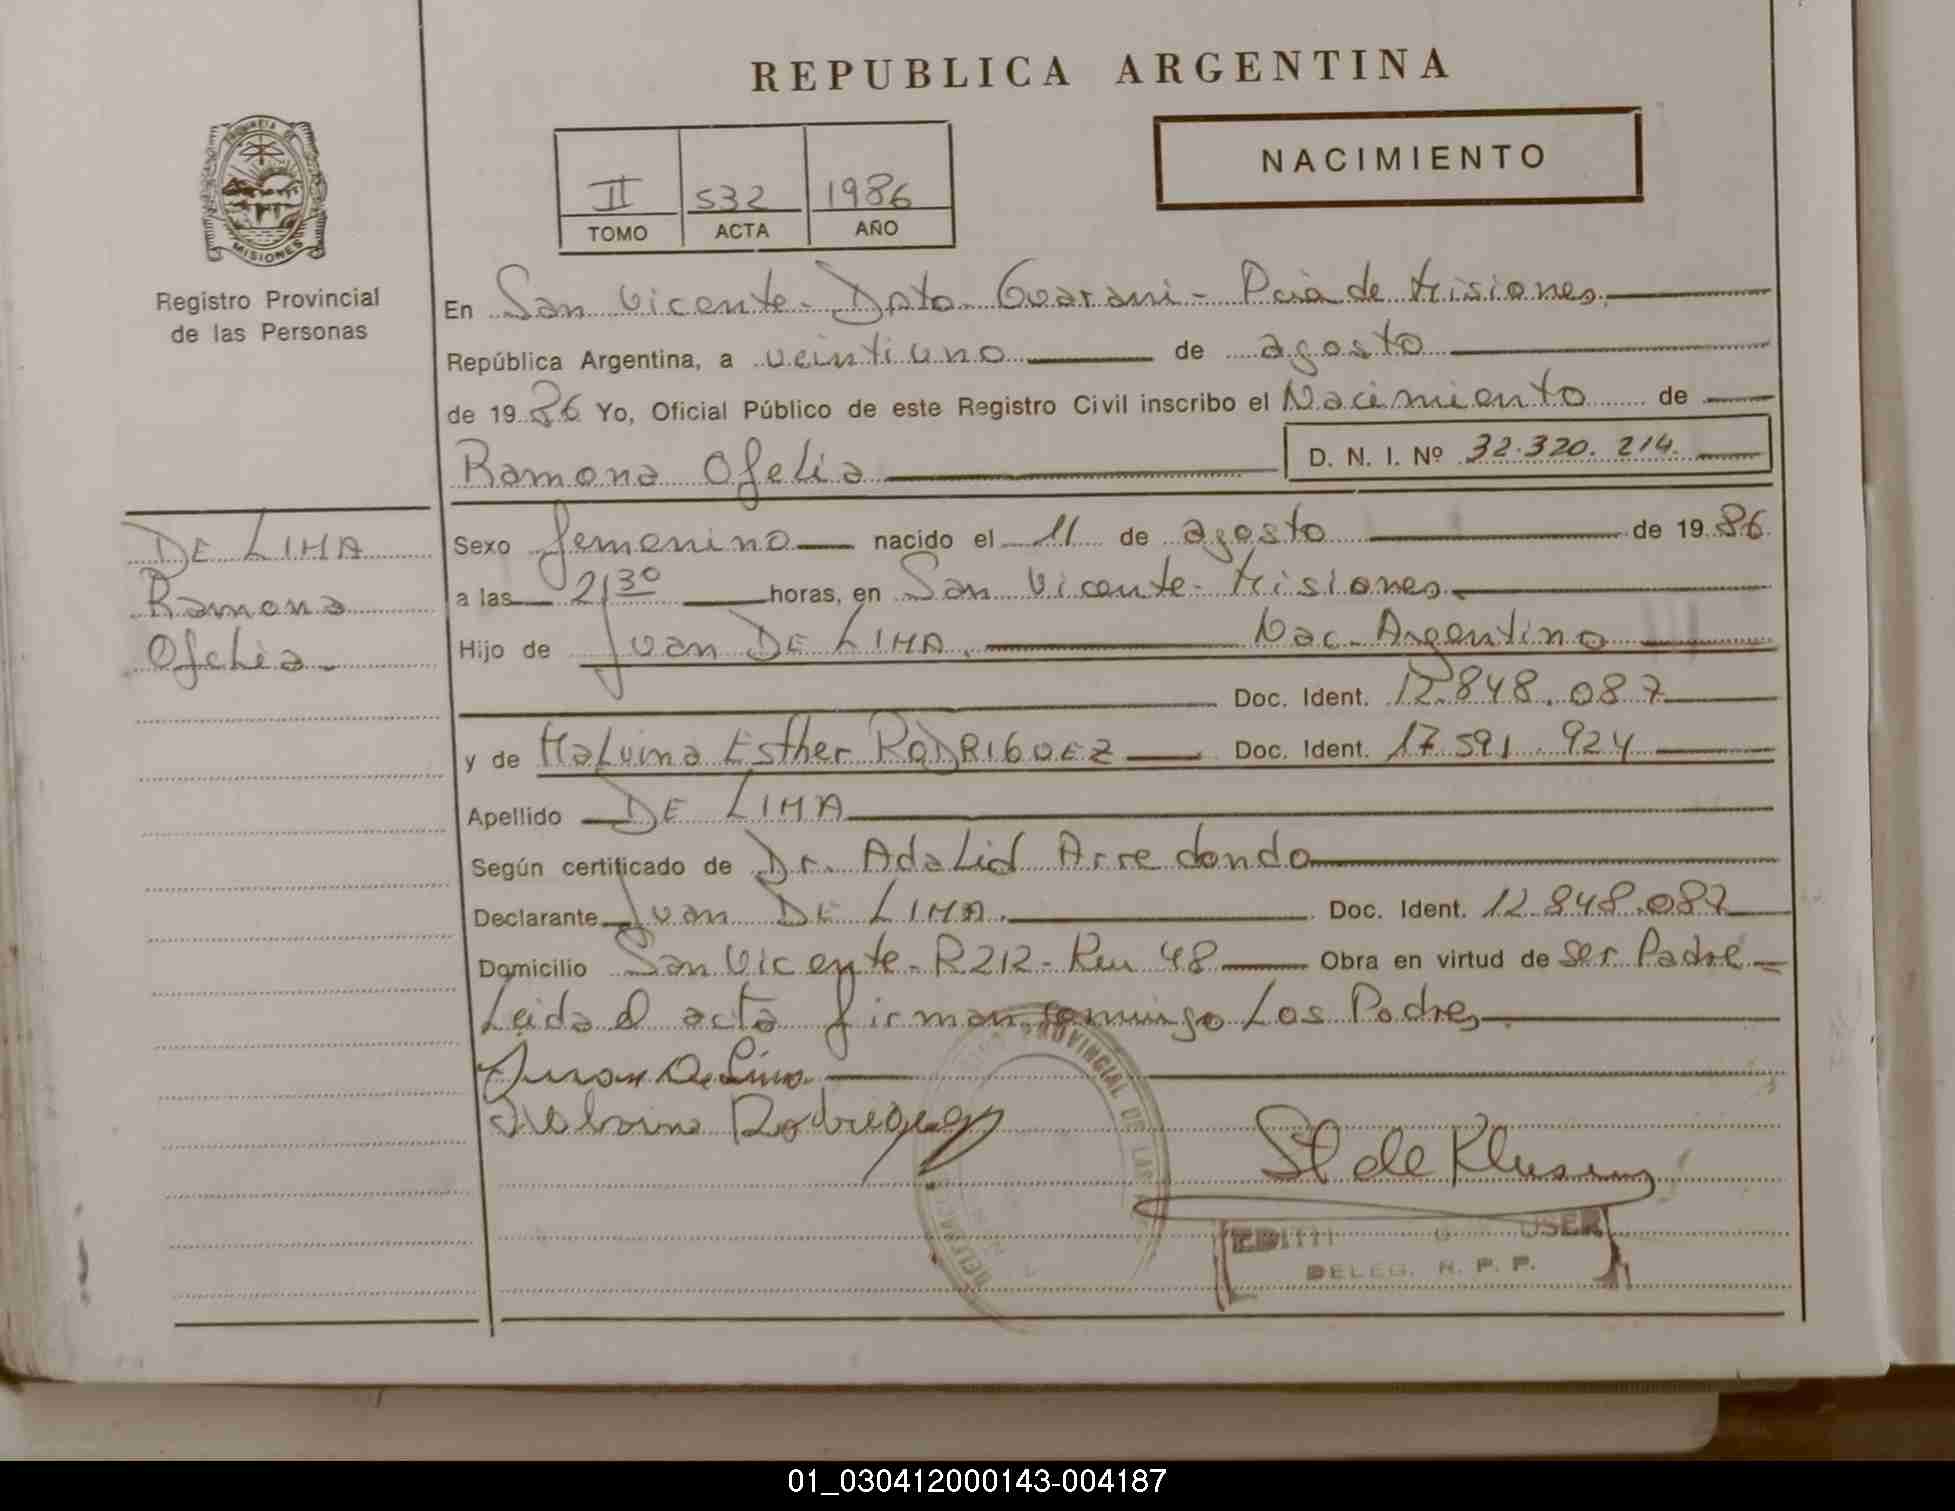 REPUBLICA ARGENTINA
NACIMIENTO
II 532 1986
TOMO ACTA AÑO
PROVINCIA DE
MISIONES
Registro Provincial
de las Personas
En San Vicente - Dpto. Guarani - Pcia de Misiones.
República Argentina, a veintiuno de agosto
de 19 86 Yo, Oficial Público de este Registro Civil inscribo el Nacimiento de
Ramona Ofelia D. N. I. Nº 32.320.214.
DE LIMA
Ramona
Ofelia
Sexo femenino nacido el 11 de agosto de 19 86
a las 21 30 horas, en San Vicente - Misiones
Hijo de Juan DE LIMA. Nac. Argentino
Doc. Ident. 12.848.087
y de Malvina Esther RODRIGUEZ Doc. Ident. 17.591.924
Apellido DE LIMA
Según certificado de Dr. Adalid Arredondo
Declarante Juan DE LIMA. Doc. Ident. 12.848.087
Domicilio San Vicente - R212 - Km 48 Obra en virtud de ser Padre
Leida el acta firman conmigo Los Padres
Juan De Lima
Malvina Rodriguez
PROVINCIAL DE LAS
St de Klusener
EDITH USER
DELEG. R. P. P.
01_030412000143-004187